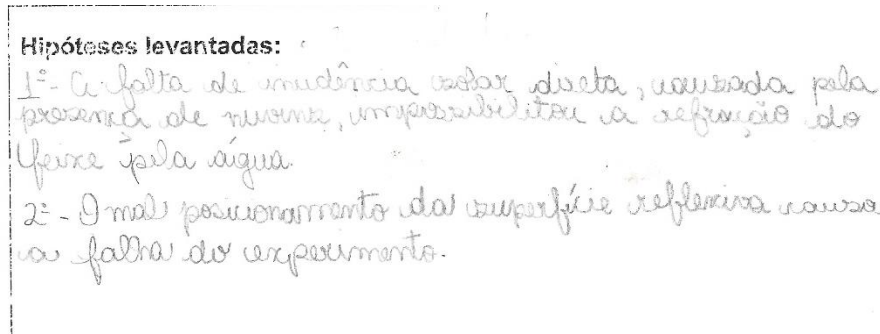 Hipóteses levantadas:
1º - A falta de incidência solar direta, causada pela
presença de nuvens, impossibilitou a refração do
feixe pela água.
2º - O mal posicionamento da superfície reflexiva causa
a falha do experimento.